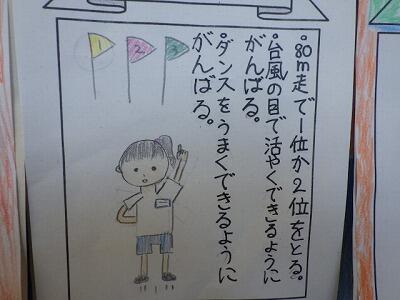 ・80m走で1位か2位をとる。
・台風の目で活やくできるように
がんばる。
・ダンスをうまくできるように
がんばる。
1
2
3